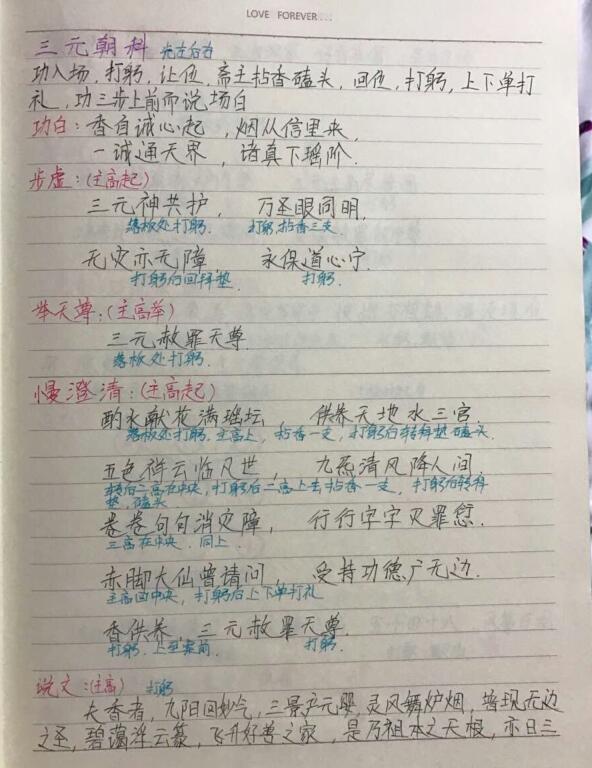 LOVE FOREVER...
三元朝科 先左后右
功入场,打躬,让位,斋主拈香磕头,回位,打躬,上下单打
礼,功三步上前而说场白
功白:香自诚心起,烟从信里来,
一诚通天界,诸真下瑶阶.
步虚:(主高起)
三元神共护, 万圣眼同明.
落板处打躬. 打躬,拈香三支.
无灾亦无障 永保道心宁.
打躬后回拜垫. 打躬.
举天尊:(主高举)
三元赦罪天尊.
落板处打躬.
慢澄清:(主高起)
酌水献花满瑶坛 供养天地水三宫.
落板处打躬.主高上,拈香一支,打躬后转拜垫磕头.
五色祥云临凡世, 九炁清风降人间.
转后二高在中央,打躬后二高上去拈香一支,打躬后转拜
垫.磕头
卷卷句句消灾障, 行行字字灭罪愆.
三高在中央.同上.
赤脚大仙曾请问, 受持功德广无边.
主高回中央,打躬后上下单打礼
香供养,三元赦罪天尊.
打躬.上至案前. 打躬.
说文:(主高) 打躬
大香者,九阳回妙气,三景产元婴,灵风舞炉烟,普现无边
之圣,碧蔼浮云篆,飞升好善之家,是乃祖本之天根,亦曰三